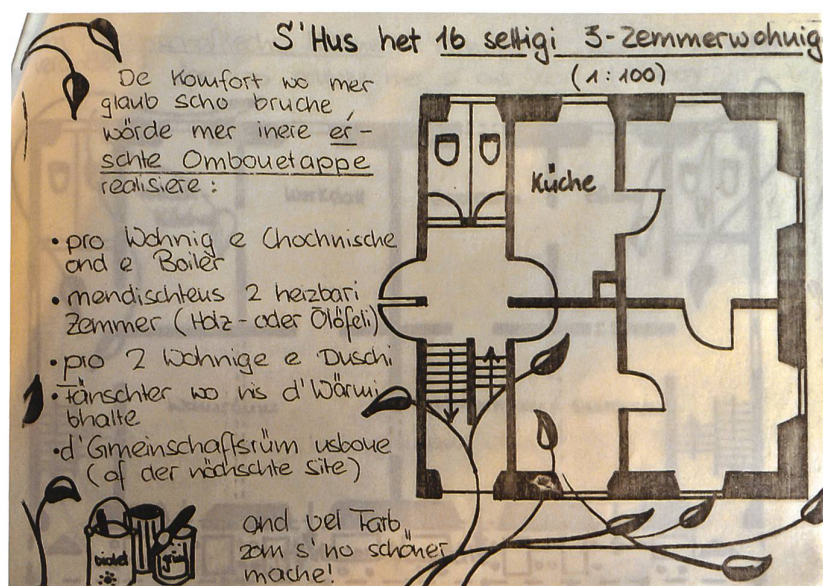 S'Hus het 16 settigi 3-Zemmerwohnig
(1:100)
De Komfort wo mer
glaub scho bruche,
wörde mer inere ér-
schte Ombouetappe
realisiere :
• pro Wohnig e Chochnische
ond e Boiler
• mendischtens 2 heizbari
Zemmer (Holz- oder Ölöfeli)
• pro 2 Wohnige e Duschi
• Fänschter wo üs d'Wärmi
bhalte
• d'Gmeinschaftsrüm usboue
(of der nächschte site)
ond vel Farb,
zom s'no schöner
mache!
Küche